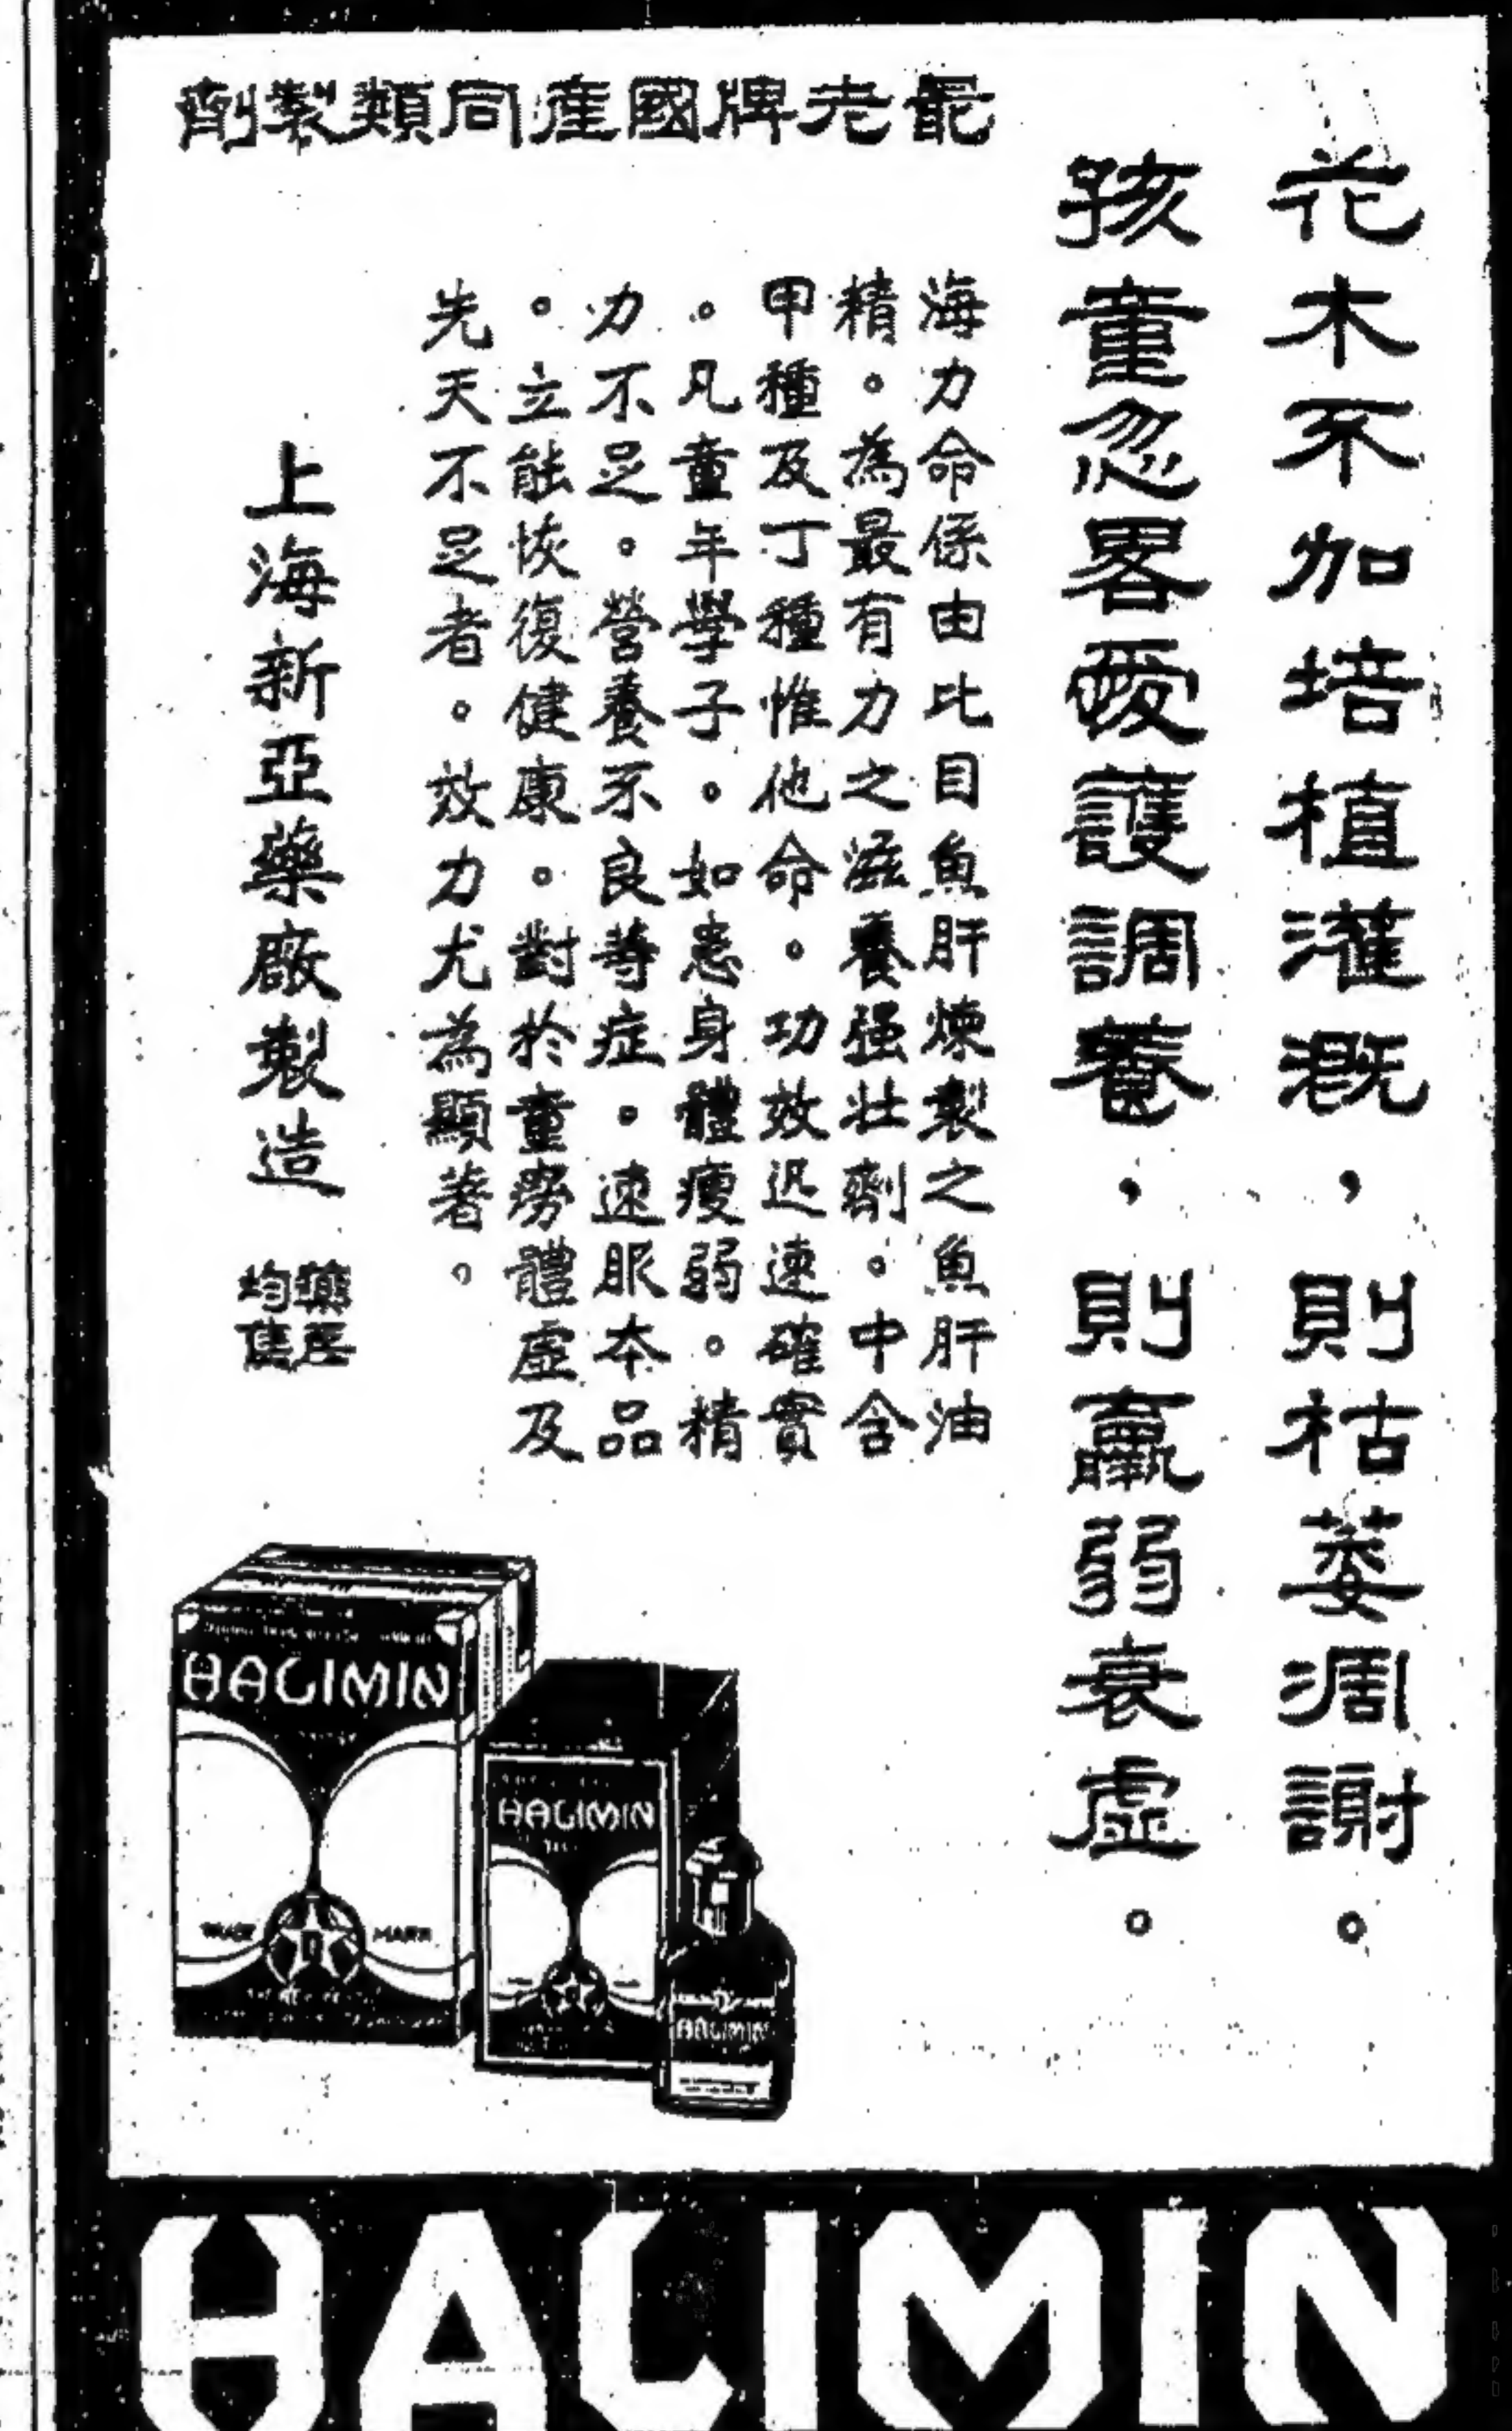 花木不加培植灌溉,則枯萎凋謝。
孩童忽畧愛護調養,則羸弱衰虛。
最老牌國產同類製劑
海力命係由比目魚肝煉製之魚肝油
精。為最有力之滋養强壯劑。中含
甲種及丁種惟他命。功效迅速確實
。凡童年學子。如患身體瘦弱。精
力不足。營養不良等症。速服本品
。立能恢復健康。對於童勞體虛及
先天不足者。效力尤為顯著。
上海新亞藥廠製造
藥房
均售
HALIMIN
TRADE MARK
HALIMIN
HALIMIN
HALIMIN